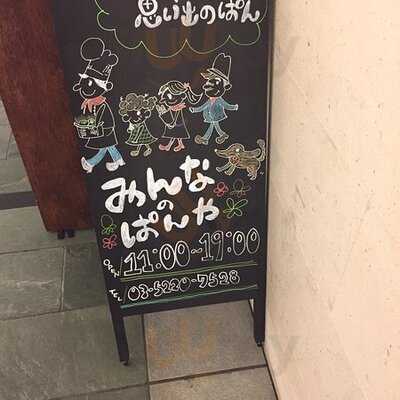 思い出のぱん
みんなの
ぱんや
OPEN 11:00~19:00
TEL 03-5220-7528